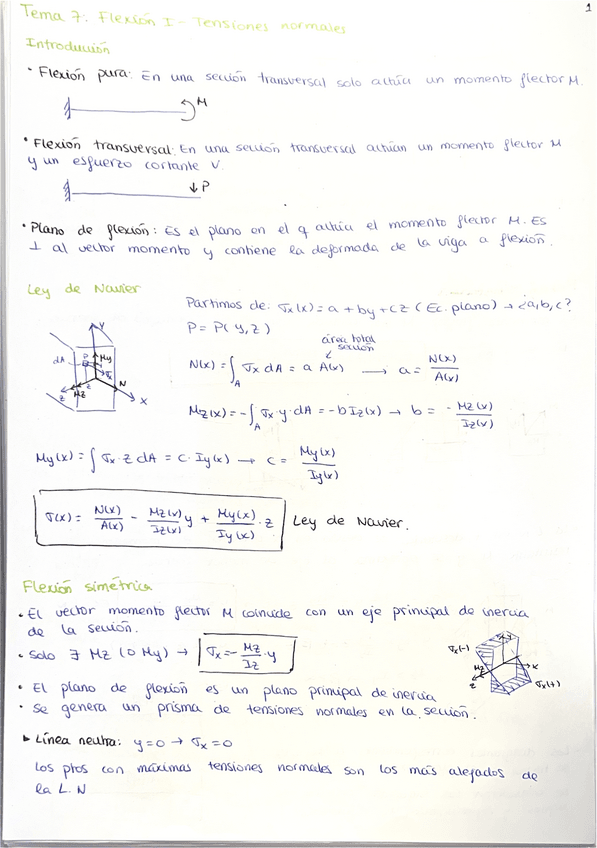 1
Tema 7: Flexión I - Tensiones normales
Introducción
• Flexión pura: En una sección transversal solo actúa un momento flector M.
M
• Flexión transversal: En una sección transversal actúan un momento flector M
y un esfuerzo cortante V.
↓P
• Plano de flexión: Es el plano en el q actúa el momento flector M. Es
⊥ al vector momento y contiene la deformada de la viga a flexión.
Ley de Navier
Partimos de: σx(x) = a + by + cz (Ec. plano) → ¿a,b,c?
P = P(y,z)
área total
sección
N(x) = ∫A σx dA = a A(x) → a = N(x)/A(x)
Mz(x) = -∫A σx·y·dA = -b Iz(x) → b = -Mz(x)/Iz(x)
y
dA
P
My
σx
z
z
Mz
N
x
My(x) = ∫ σx·z dA = c·Iy(x) → c = My(x)/Iy(x)
σ(x) = N(x)/A(x) - Mz(x)/Iz(x) y + My(x)/Iy(x)·z Ley de Navier.
Flexión simétrica
• El vector momento flector M coincide con un eje principal de inercia
de la sección.
• Solo ∃ Mz (o My) → σx = -Mz/Iz·y
σx(-)
y
x
z
σx(+)
• El plano de flexión es un plano principal de inercia
• Se genera un prisma de tensiones normales en la sección.
► Línea neutra: y=0 → σx=0
Los ptos con máximas tensiones normales son los más alejados de
la L.N